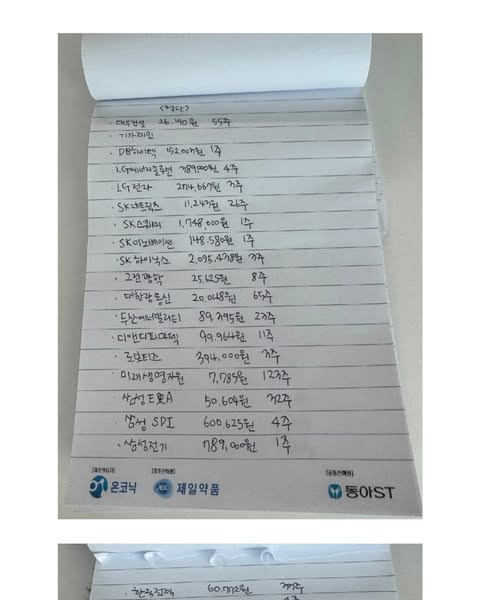 <평단>
· 대우건설 26,190원 55주
· 기가레인
· DB하이텍 152,007원 1주
LG에너지솔루션 389,000원 4주
LG전자 274,667원 3주
· SK네트웍스 11,243원 26주
· SK스퀘어 1,748,000원 1주
· SK이노베이션 148,580원 1주
· SK하이닉스 2,095,438원 3주
· 그린광학 25,625원 8주
· 대한광통신 20,048원 65주
· 두산에너빌리티 89,395원 23주
· 디앤디파마텍 99,964원 11주
· 로보티즈 394,000원 3주
· 미래생명자원 7,785원 123주
· 삼성E&A 50,604원 32주
· 삼성 SDI 600,625원 4주
· 삼성전기 789,000원 1주
온코닉 제일약품 동아ST
· 한국전력 60,772원